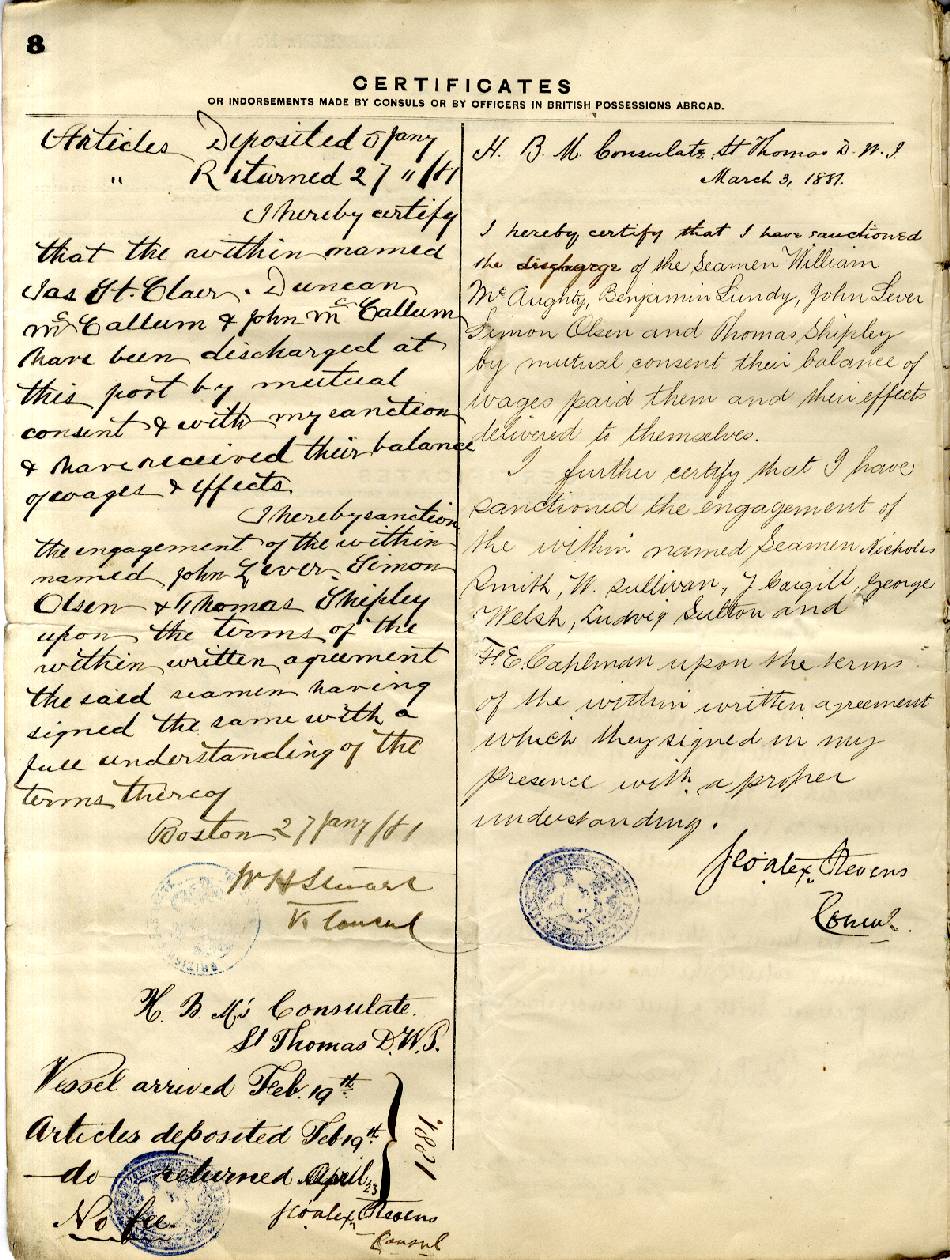 8
CERTIFICATES
OR INDORSEMENTS MADE BY CONSULS OR BY OFFICERS IN BRITISH POSSESSIONS ABROAD.
Articles Deposited 5 Jany
" Returned 27 " /81
I hereby certify
that the within named
Jas St. Clair. Duncan
McCallum & John McCallum
have been discharged at
this port by mutual
consent & with my sanction
& have received their balance
of wages & effects
I hereby sanction
the engagement of the within
named John Lever. Simon
Olsen & Thomas Shipley
upon the terms of the
within written agreement
the said seamen having
signed the same with a
full understanding of the
terms thereof
Boston 27 Jany /81
W H Stuart
V. Consul
H. B. M's Consulate.
St Thomas D.W.I.
Vessel arrived Feb. 19th
Articles deposited Feb 19th
do returned April 23
1881.
No fee.
Jno Alex. Stevens
Consul
H. B. M. Consulate, St Thomas D. W. I
March 3, 1881.
I hereby certify that I have sanctioned
the discharge of the Seamen William
McAughty, Benjamin Lundy, John Lever
Simon Olsen and Thomas Shipley
by mutual consent their balance of
wages paid them and their effects
delivered to themselves.
I further certify that I have
sanctioned the engagement of
the within named Seamen Nicholas
Smith, W. Sullivan, J Cargill, George
Welsh, Ludvig Sutton and
F E. Cahlman upon the terms
of the within written agreement
which they signed in my
presence with a proper
understanding.
Jno Alex. Stevens
Consul.